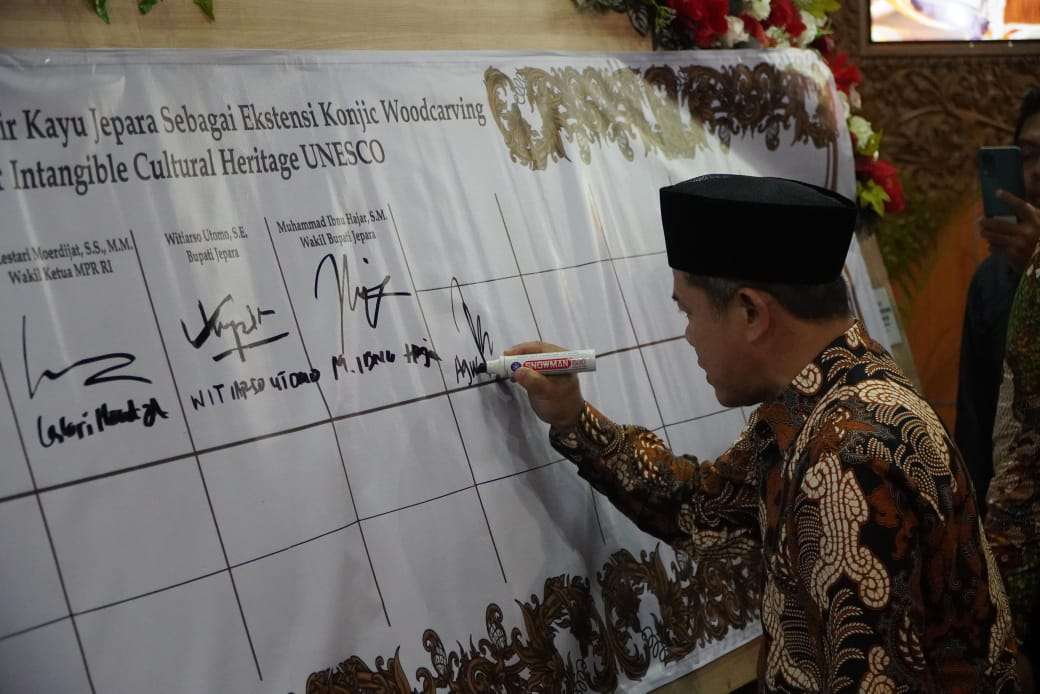 ir Kayu Jepara Sebagai Ekstensi Konjic Woodcarving
r Intangible Cultural Heritage UNESCO
Lestari Moerdijat, S.S., M.M.
Wakil Ketua MPR RI
Witiarso Utomo, S.E.
Bupati Jepara
Muhammad Ibnu Hajar, S.M.
Wakil Bupati Jepara
WITIARSO UTOMO
M. IBNU Hajar
SNOWMAN